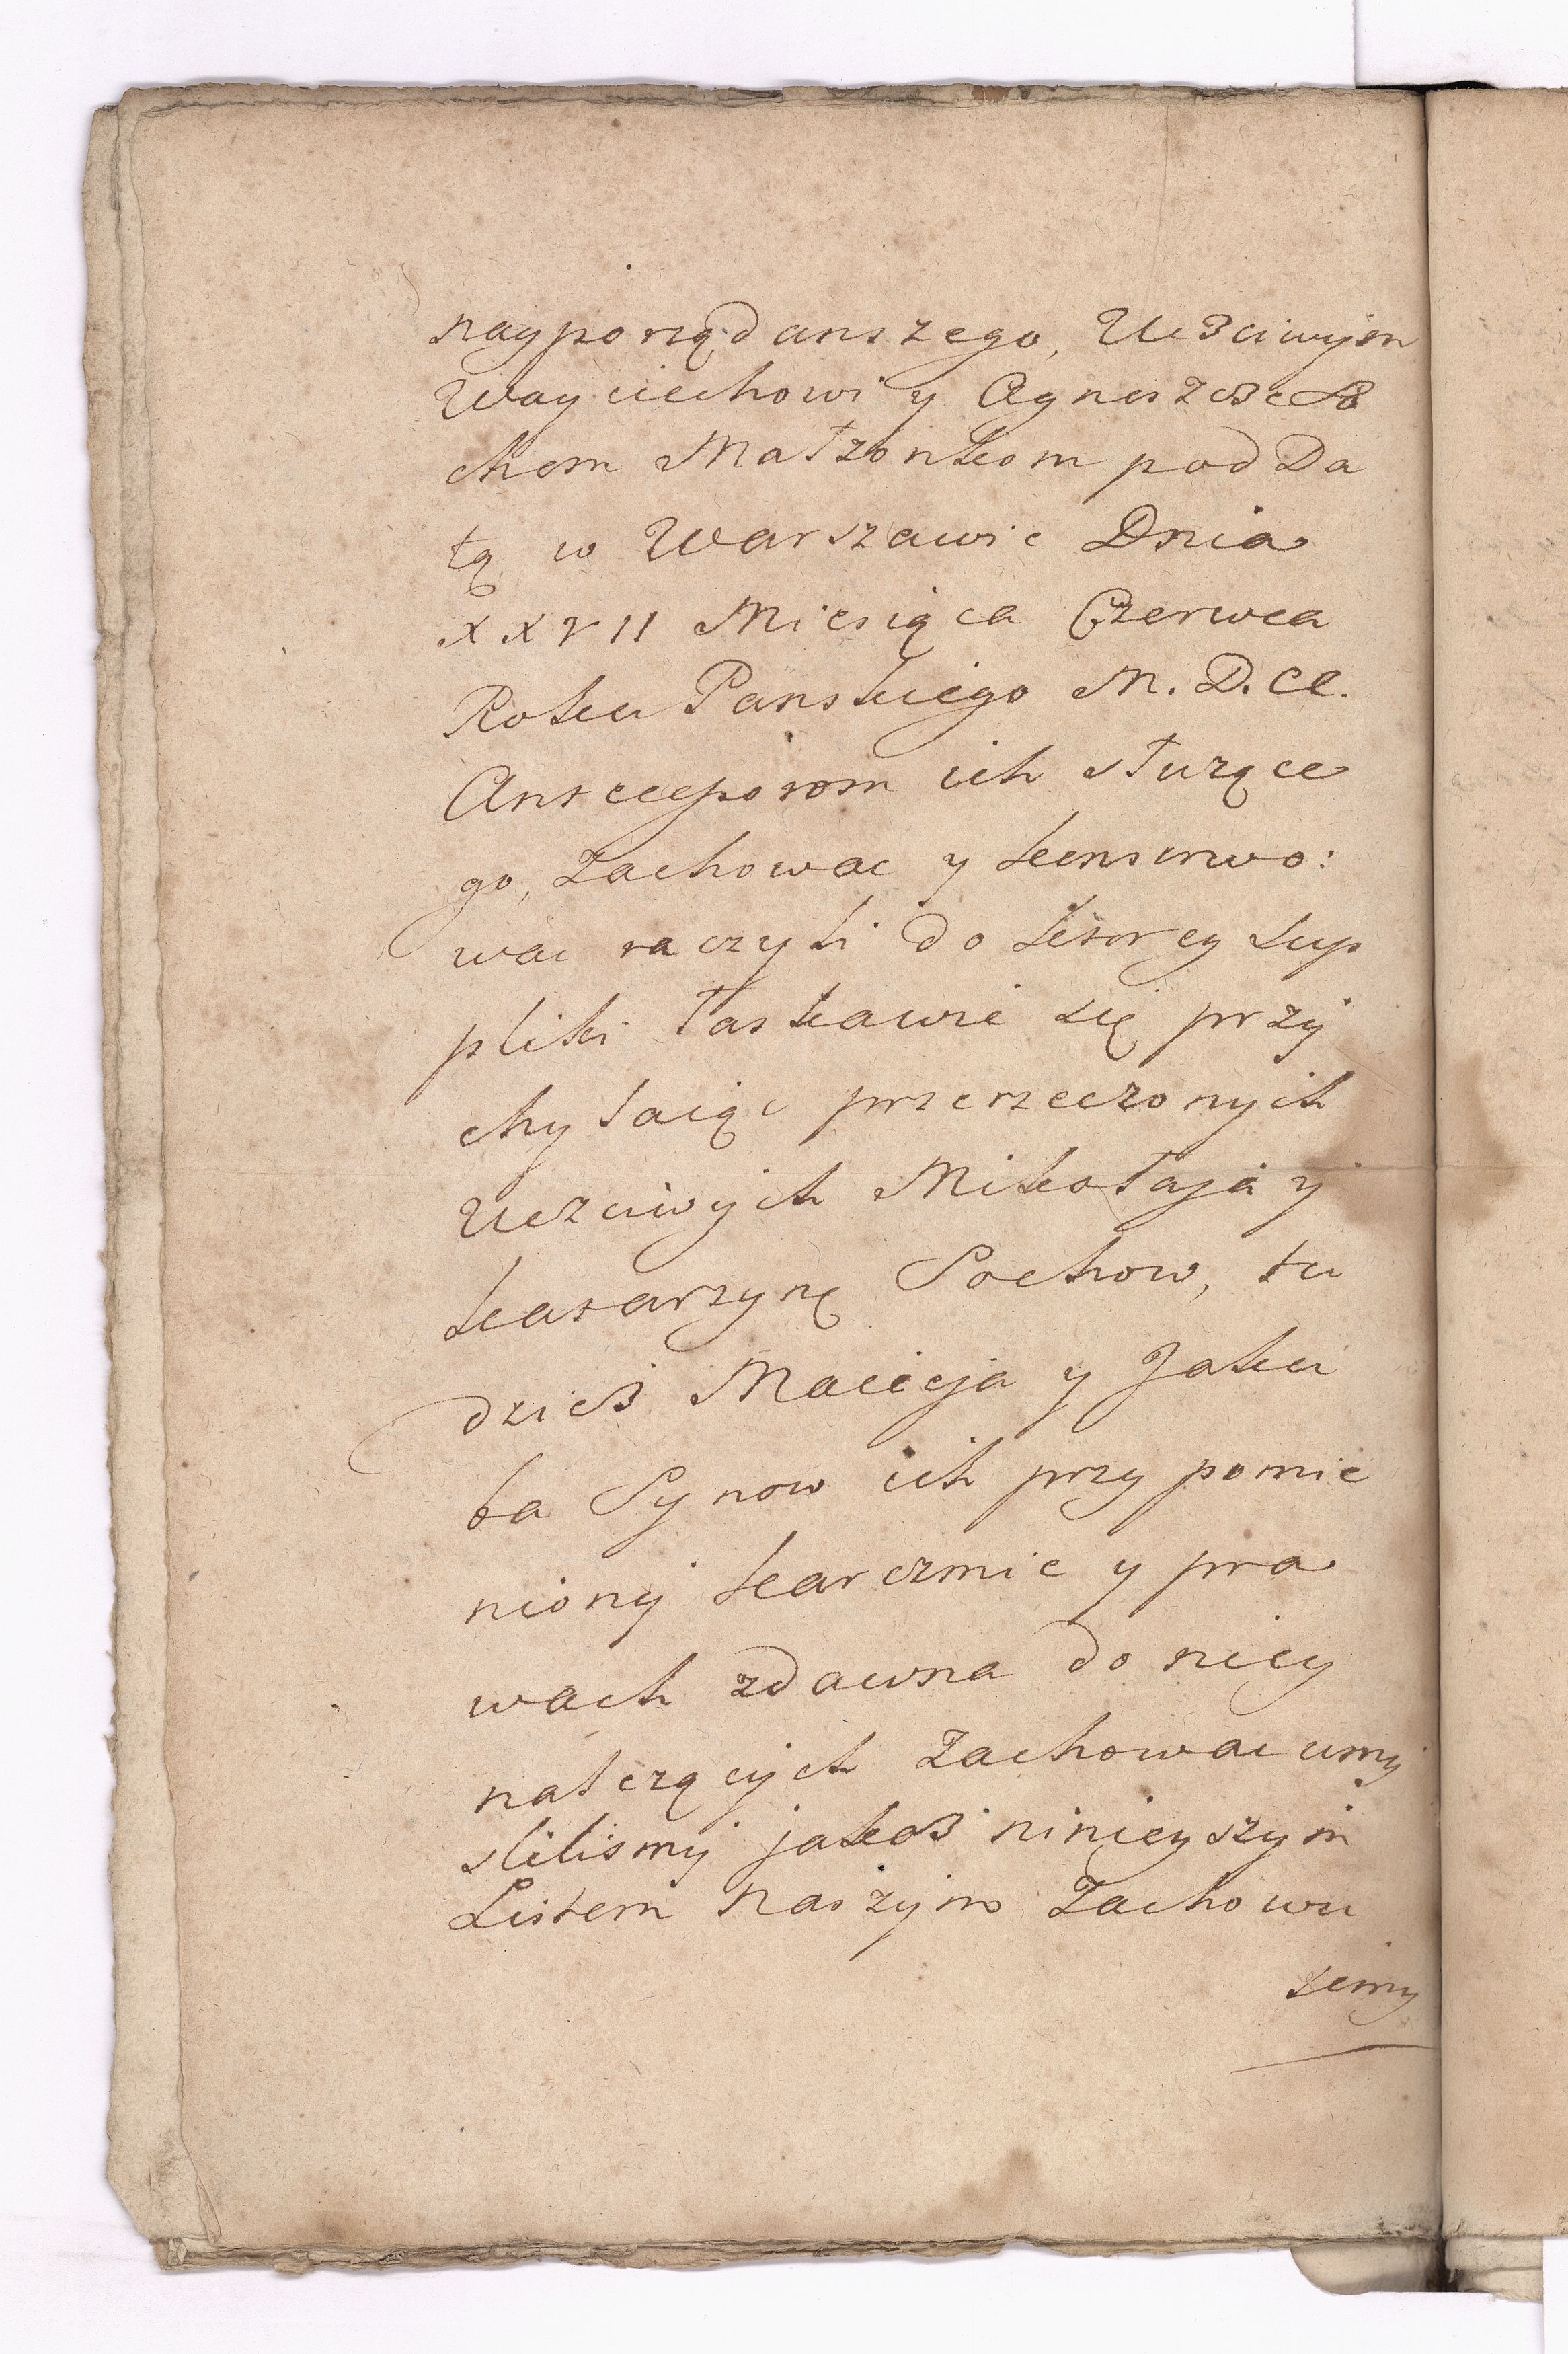 nayporządanszego, Uczciwym
Woyciechowi y Agneszce So
chom Małzonkom pod Da
tą w Warszawie Dnia
XXVII Miesiąca Czerwca
Roku Panskiego M.D.CC.
Antecessorom ich słuzące
go, Zachowac y konserwo:
wac raczyli do ktorey Sup
pliki łaskawie się przy
chylaiąc przerzeczonych
Uczciwych Mikołaja y
Katarzynę Sochow, tu
dziesz Macieja y Jaku
ba Synow ich przy pomie
niony karczmie y pra
wach zdawna do niey
nalezących Zachowac umy
slilismy jakosz ninieyszym
Listem Naszym Zachowu
iemy